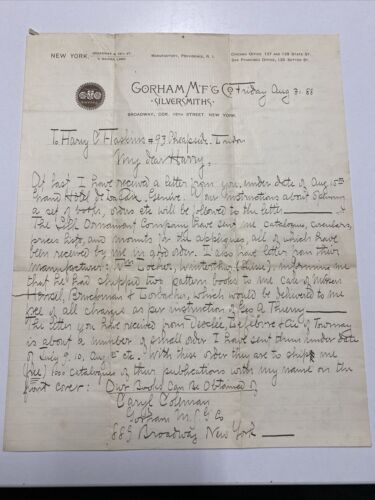 NEW YORK.
BROADWAY & 19TH ST.
9 MAIDEN LANE.
MANUFACTORY, PROVIDENCE, R. I.
CHICAGO OFFICE 137 AND 139 STATE ST.
SAN FRANCISCO OFFICE, 120 SUTTER ST.
GORHAM M'F'G Co
·SILVERSMITHS·
BROADWAY, COR. 19TH STREET, NEW YORK.
Friday Aug 31. 88
To Harry C Haskins # 93 Cheapside London
My dear Harry;
At last I have received a letter from you, under date of Aug 15th
Grand Hotel de la Paix, Geneve. Your instructions about
a set of both, orders etc will be followed to the letter
The Ornament Company have sent me catalogue, circulars,
prices lists, and mounts for the appliques, all of which have
been received by me in good order. I also have letter from their
manufacturer: Wm Winterthur informing me
that he had shipped two pattern books to me care of
Hensel, Bruckman & Lorbacher, which would be delivered to me
free of all charges as per instruction of Geo A Thierry
The letter you have received from Desclée, Lefebvre & Cie of Tournay
is about a number of small order I have sent them under date
of July 9, 10, Aug etc. With these order they are to ship me
free) 1000 catalogues of their publications with my name on the
front cover: Our Books Can Be Obtained of
Caryl Coleman
Gorham M. f. g Co
889 Broadway New York